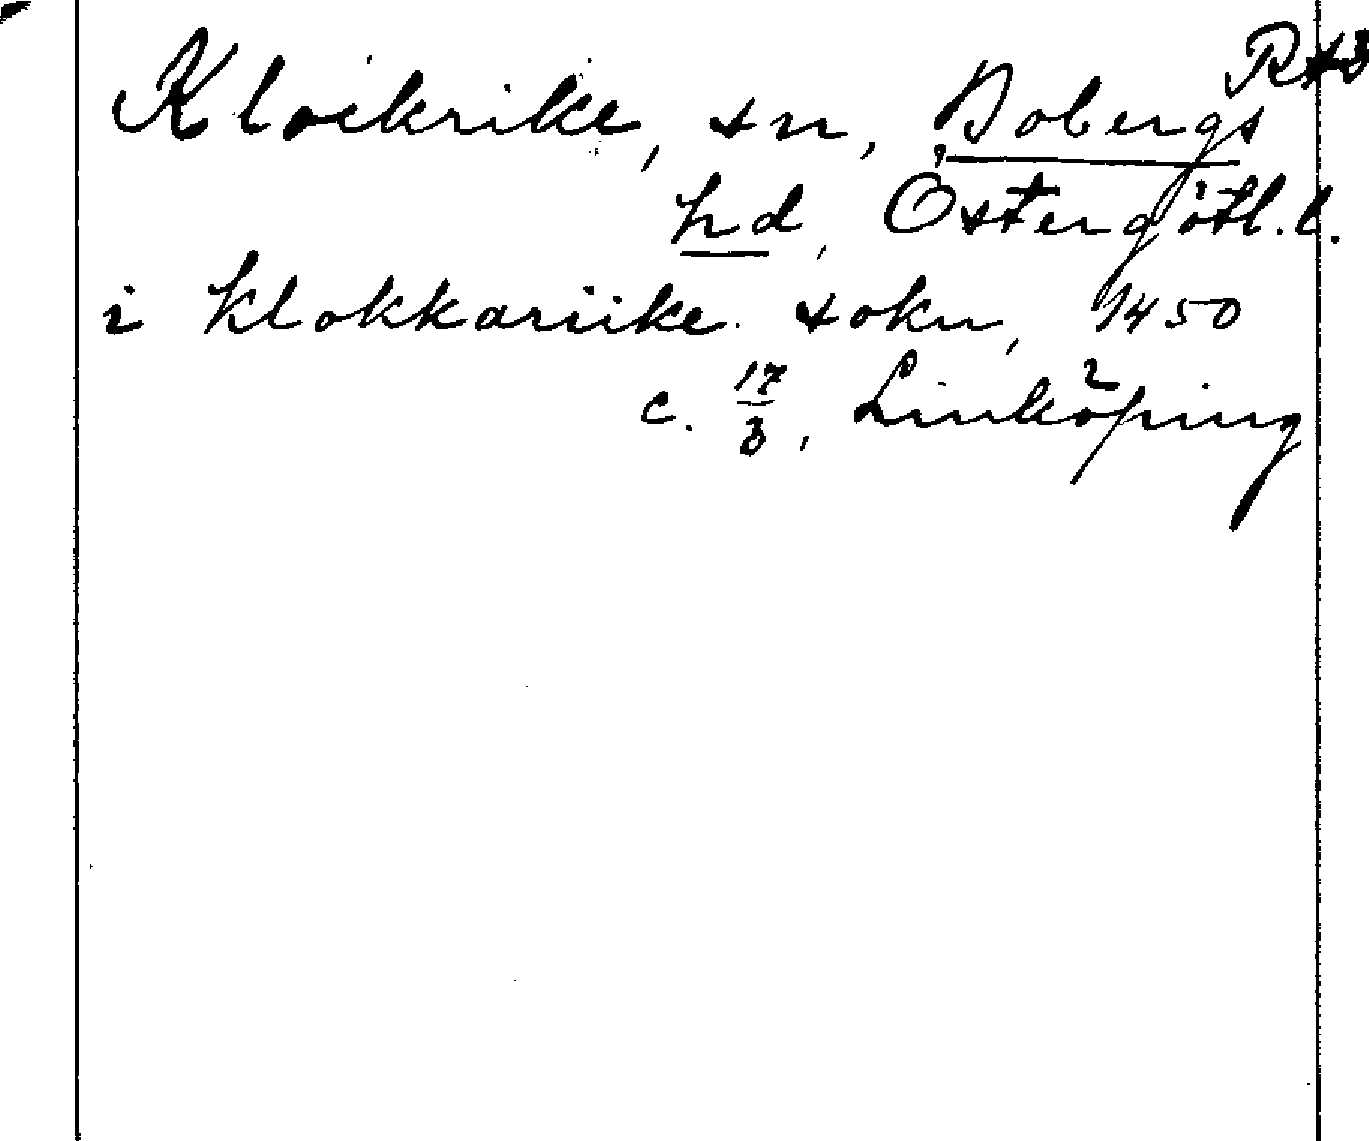 Rt3
Klockrike, sn, Bobergs
hd, Östergötl. l.
i klokkariike sokn, 1450
c. 17/3, Linköping